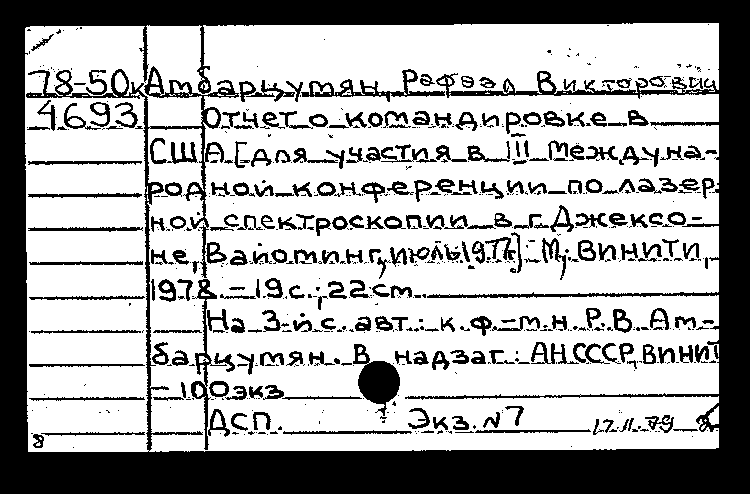 78-50к Амбарцумян, Рафаэл Викторович
4693 Отчет о командировке в
США [для участия в III Междуна-
родной конференции по лазер-
ной спектроскопии в г. Джексо-
не, Вайоминг, июль 1977г.] М., ВИНИТИ,
1978. - 19 с.; 22 cm
На 3-й с. авт.: к.ф.-м.н. Р.В. Ам-
барцумян. В надзаг.: АН СССР, ВИНИТ
- 100 экз
ДСП. Экз. №7 17.11.79
8